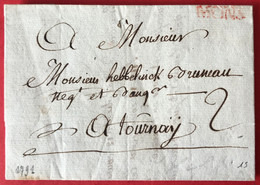 A Monsieur
Monsieur hebbelinck Bruneau
Neg.t et Banq.r
A tournaÿ
2
1791
13